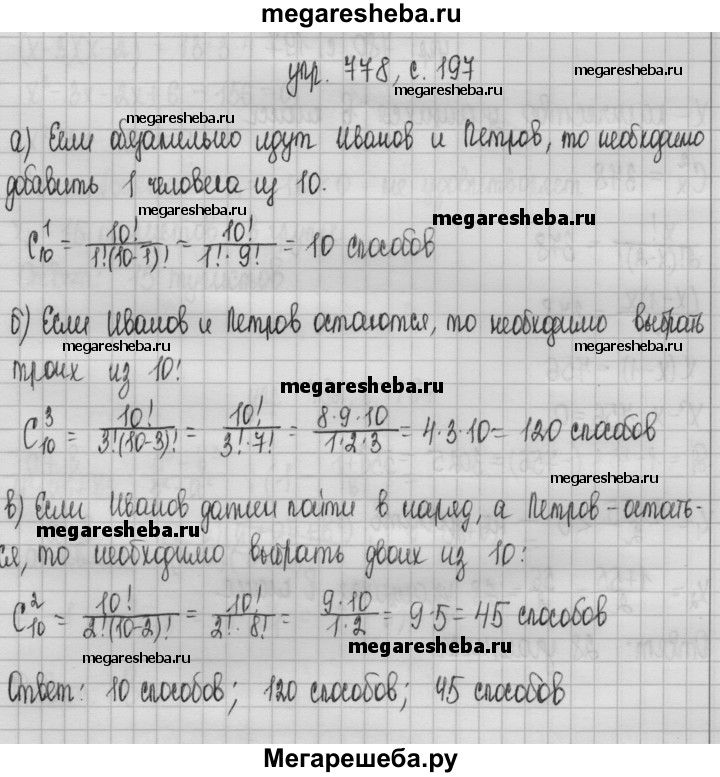 megaresheba.ru
упр. 778, с. 197
megaresheba.ru
megaresheba.ru
megaresheba.ru
а) Если обязательно идут Иванов и Петров, то необходимо
добавить 1 человека из 10.
megaresheba.ru
megaresheba.ru
C₁₀¹ = 10!/1!(10-1)! = 10!/1!·9! = 10 способов
б) Если Иванов и Петров остаются, то необходимо выбрать
megaresheba.ru
megaresheba.ru
троих из 10!
megaresheba.ru
C₁₀³ = 10!/3!(10-3)! = 10!/3!·7! = 8·9·10/1·2·3 = 4·3·10 = 120 способов
megaresheba.ru
в) Если Иванов должен пойти в наряд, а Петров - остать-
megaresheba.ru
ся, то необходимо выбрать двоих из 10:
C₁₀² = 10!/2!(10-2)! = 10!/2!·8! = 9·10/1·2 = 9·5 = 45 способов
megaresheba.ru
megaresheba.ru
Ответ: 10 способов; 120 способов; 45 способов
Мегарешеба.ру